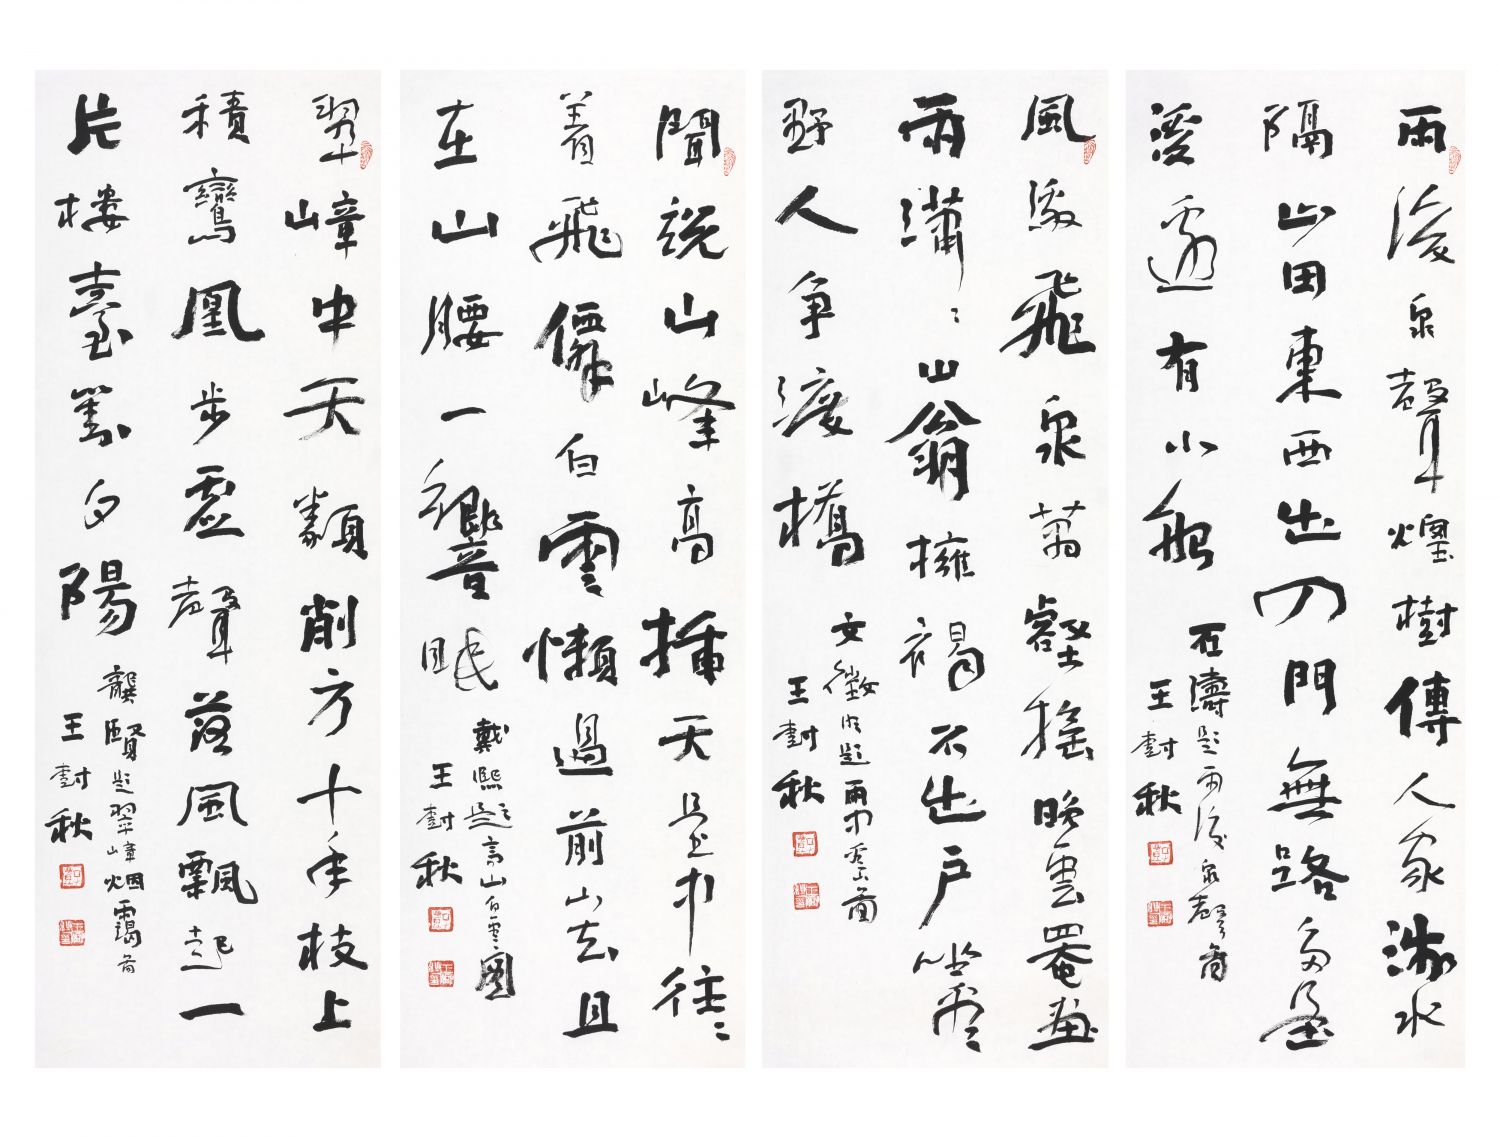 雨後泉聲煙樹傳人家流水
隔山田東西出入門無路多是
溪邊有小船
石濤題雨後泉聲圖
王封秋
風激飛泉萬壑搖晚雲罨畫
雨瀟瀟山翁擁褐不出戶坐看
野人爭渡橋
文徵明題雨中看山圖
王封秋
聞說山峰高插天是中往往
著飛僊白雲懶過前山去且
在山腰一響眠
戴熙題高山白雲圖
王封秋
翠嶂中天類削方十年枝上
積鸞凰步虛聲落風飄起一
片樓臺對夕陽
龔賢題翠嶂烟靄圖
王封秋